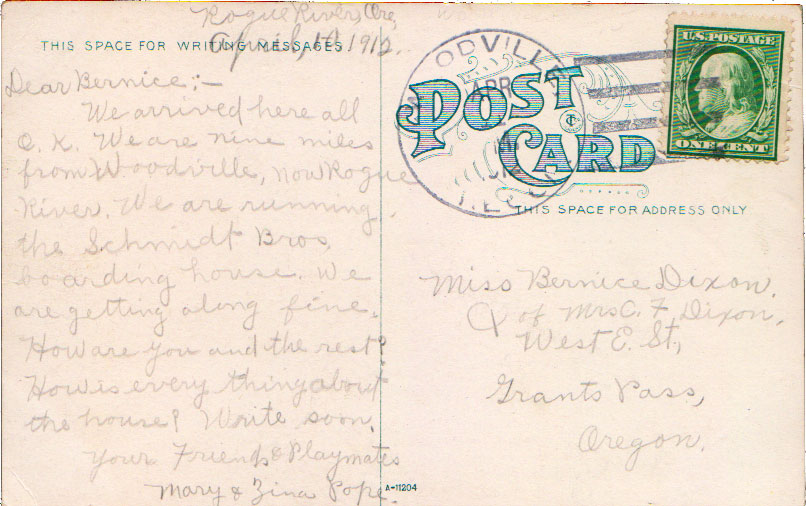 Rogue River, Ore,
April, 10, 1912.
THIS SPACE FOR WRITING MESSAGES
Dear Bernice:—
We arrived here all
O. K. We are nine miles
from Woodville, now Rogue
River. We are running
the Schmidt Bros,
boarding house. We
are getting along fine.
How are you and the rest?
How is every thing about
the house? Write soon.
Your Friends & Playmates
Mary & Zina Pope.
A-11204
ODVILLE
APR
POST
CARD
U.S. POSTAGE
ONE CENT
THIS SPACE FOR ADDRESS ONLY
Miss Bernice Dixon,
of Mrs C. F. Dixon,
West E. St,
Grants Pass,
Oregon.